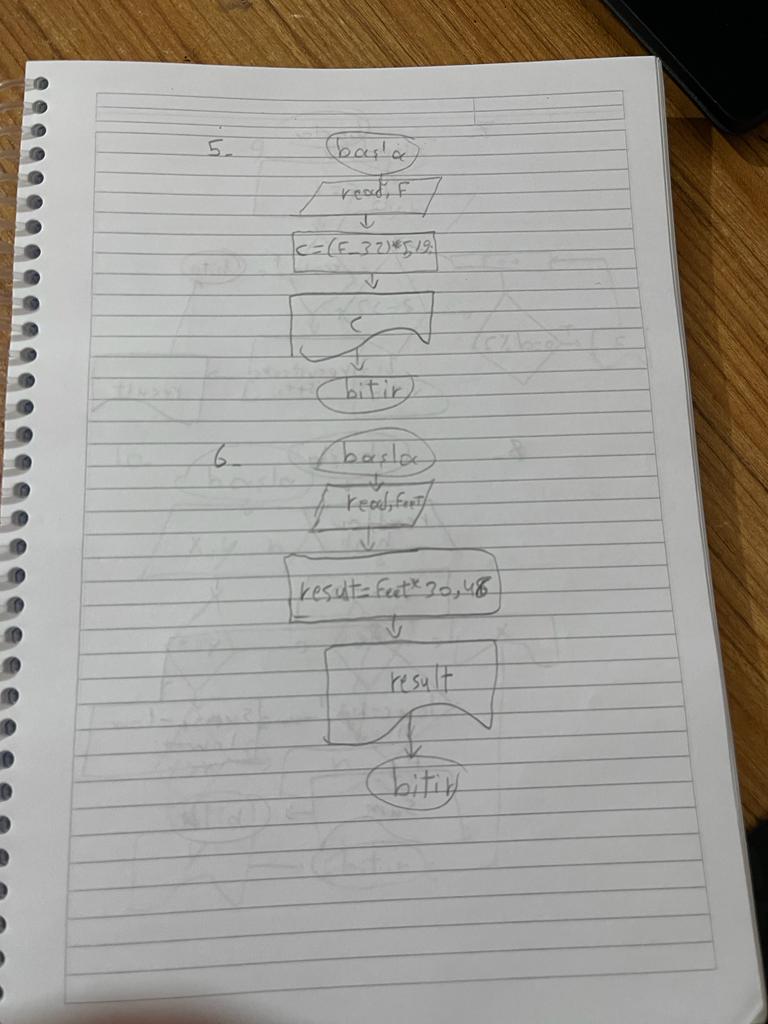 5-
başla
read, F
C=(F-32)*5/9
C
bitir
6-
başla
read, Feet
result=Feet*30,48
result
bitir